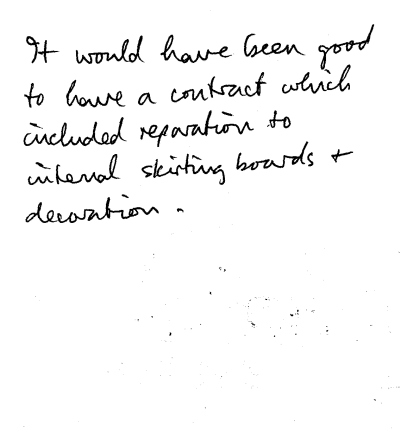 It would have been good
to have a contract which
included reparation to
internal skirting boards +
decoration.